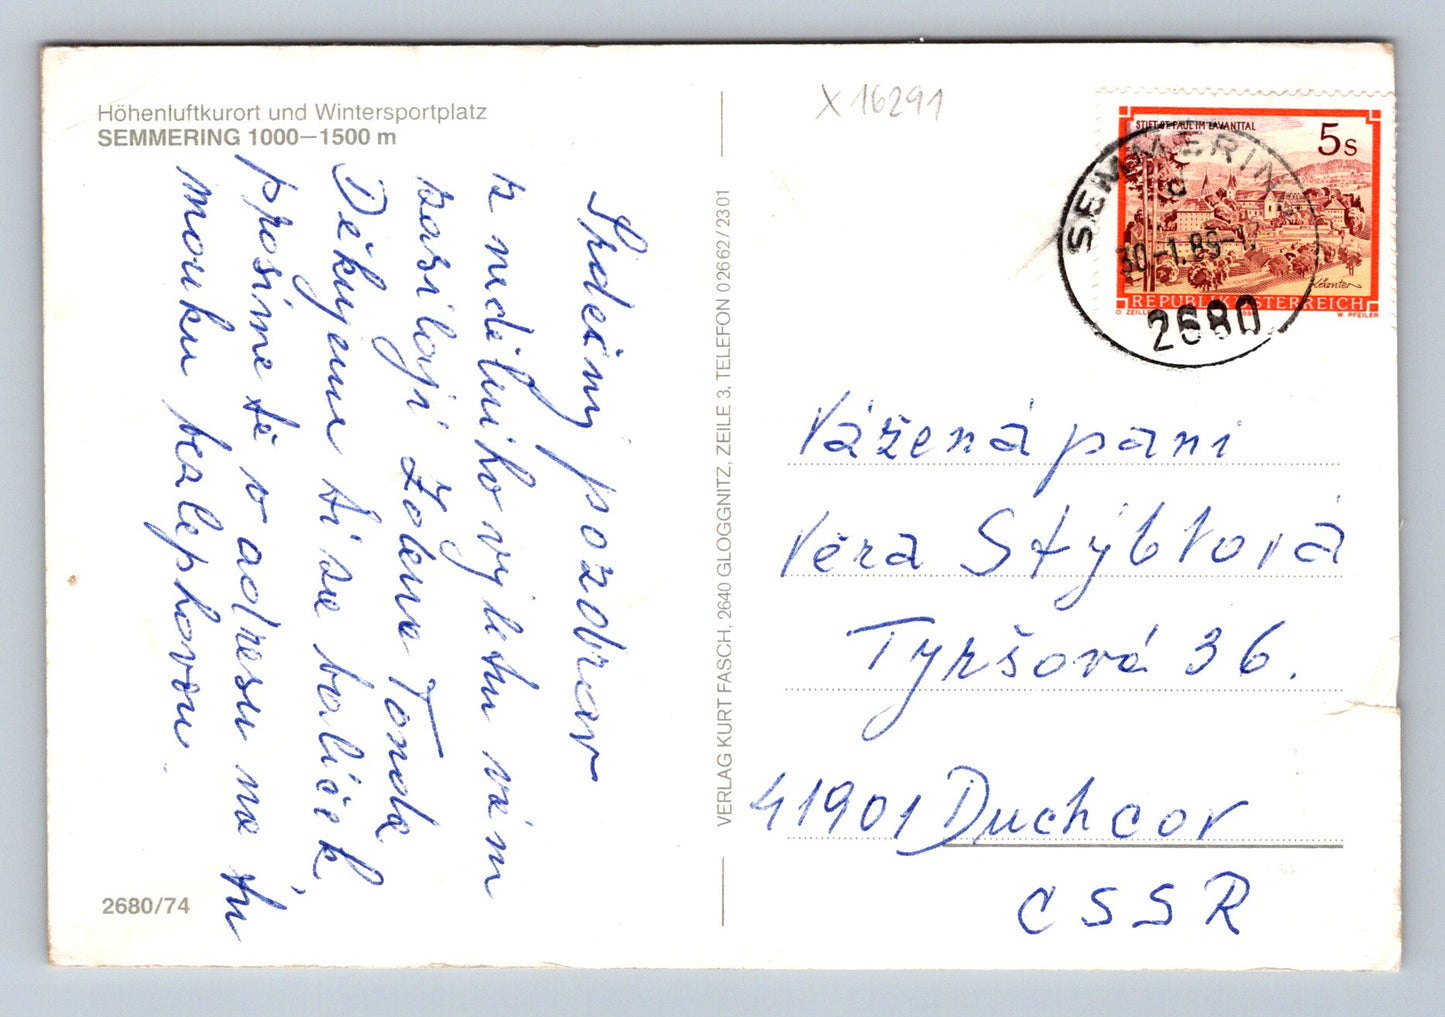 Höhenluftkurort und Wintersportplatz
SEMMERING 1000—1500 m
Srdečný pozdrav
z nedělního výletu vám
zasílají Ždena Tonda
Děkujeme ti za balíček
prosíme tě o adresu na tu
mouku bezlepkovou.
2680/74
VERLAG KURT FASCH, 2640 GLOGGNITZ, ZEILE 3, TELEFON 02662/2301
X 16291
STIFT ST. PAUL IM LAVANTTAL
5 S
REPUBLIK ÖSTERREICH
W. PFEILER
SEMMERING
30.-1.89-1
2680
Vážená paní
Věra Stýblová
Tyršová 36.
41901 Duchcov
CSSR